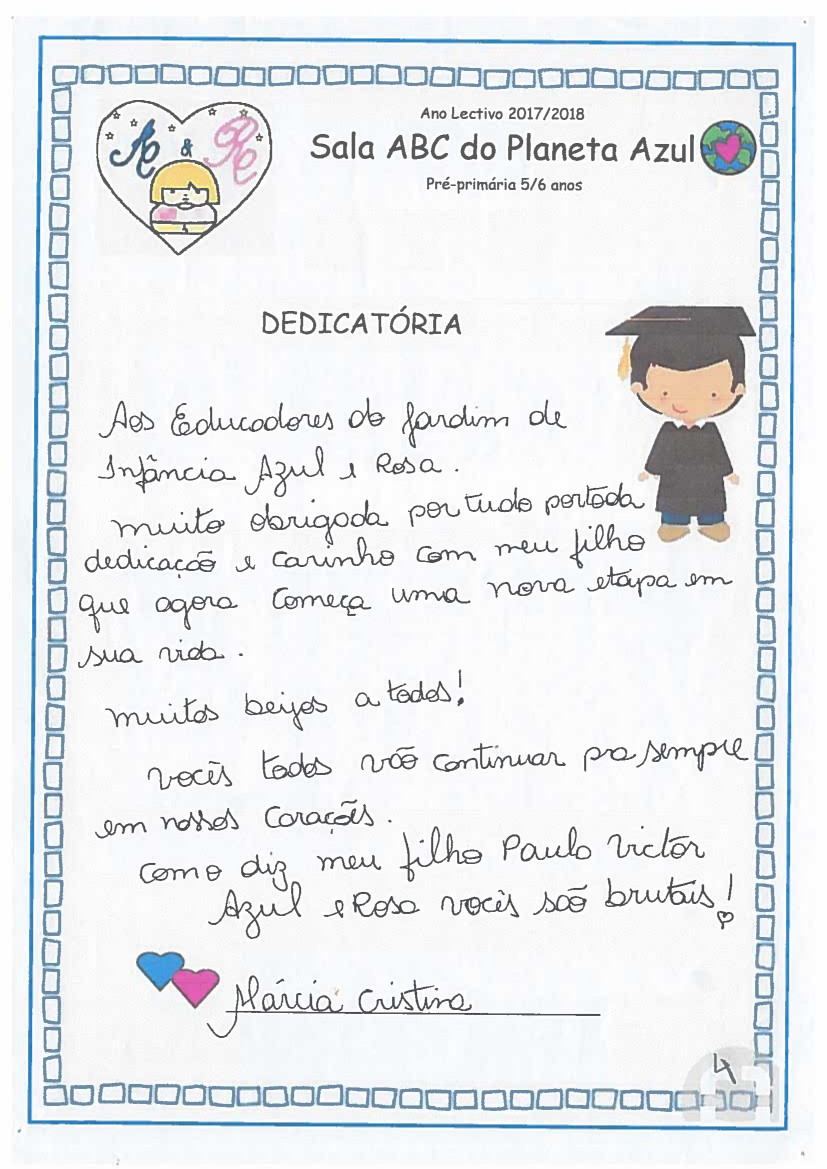 Ano Lectivo 2017/2018
A & R
Sala ABC do Planeta Azul
Pré-primária 5/6 anos
DEDICATÓRIA
Aos Educadores do Jardim de
Infância Azul e Rosa.
Muito obrigada por tudo por toda
dedicação e carinho com meu filho
que agora começa uma nova etapa em
sua vida.
Muitos beijos a todos!
Vocês todos vão continuar pra sempre
em nossos corações.
Como diz meu filho Paulo Victor
Azul e Rosa vocês são brutais!
Márcia Cristina
4